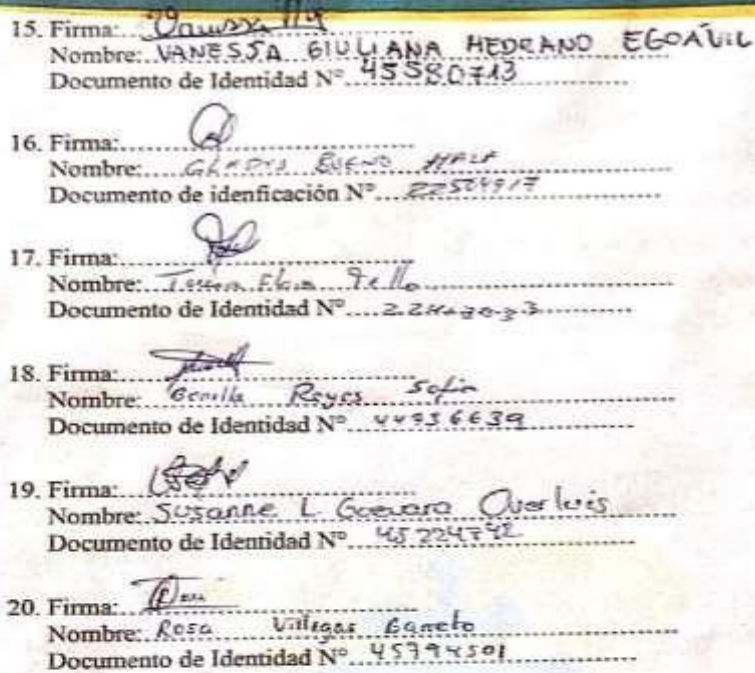 15. Firma:
Nombre: VANESSA GIULIANA MEDRANO EGOÁVIL
Documento de Identidad Nº 45580713
16. Firma:
Nombre: GLADYS BUENO
Documento de idenficación Nº
17. Firma:
Nombre: Tello
Documento de Identidad Nº
18. Firma:
Nombre: Bonilla Reyes Sofia
Documento de Identidad Nº 44936639
19. Firma:
Nombre: Susanne L Guevara
Documento de Identidad Nº 45224742
20. Firma:
Nombre: Rosa Villegas Barreto
Documento de Identidad Nº 45794501